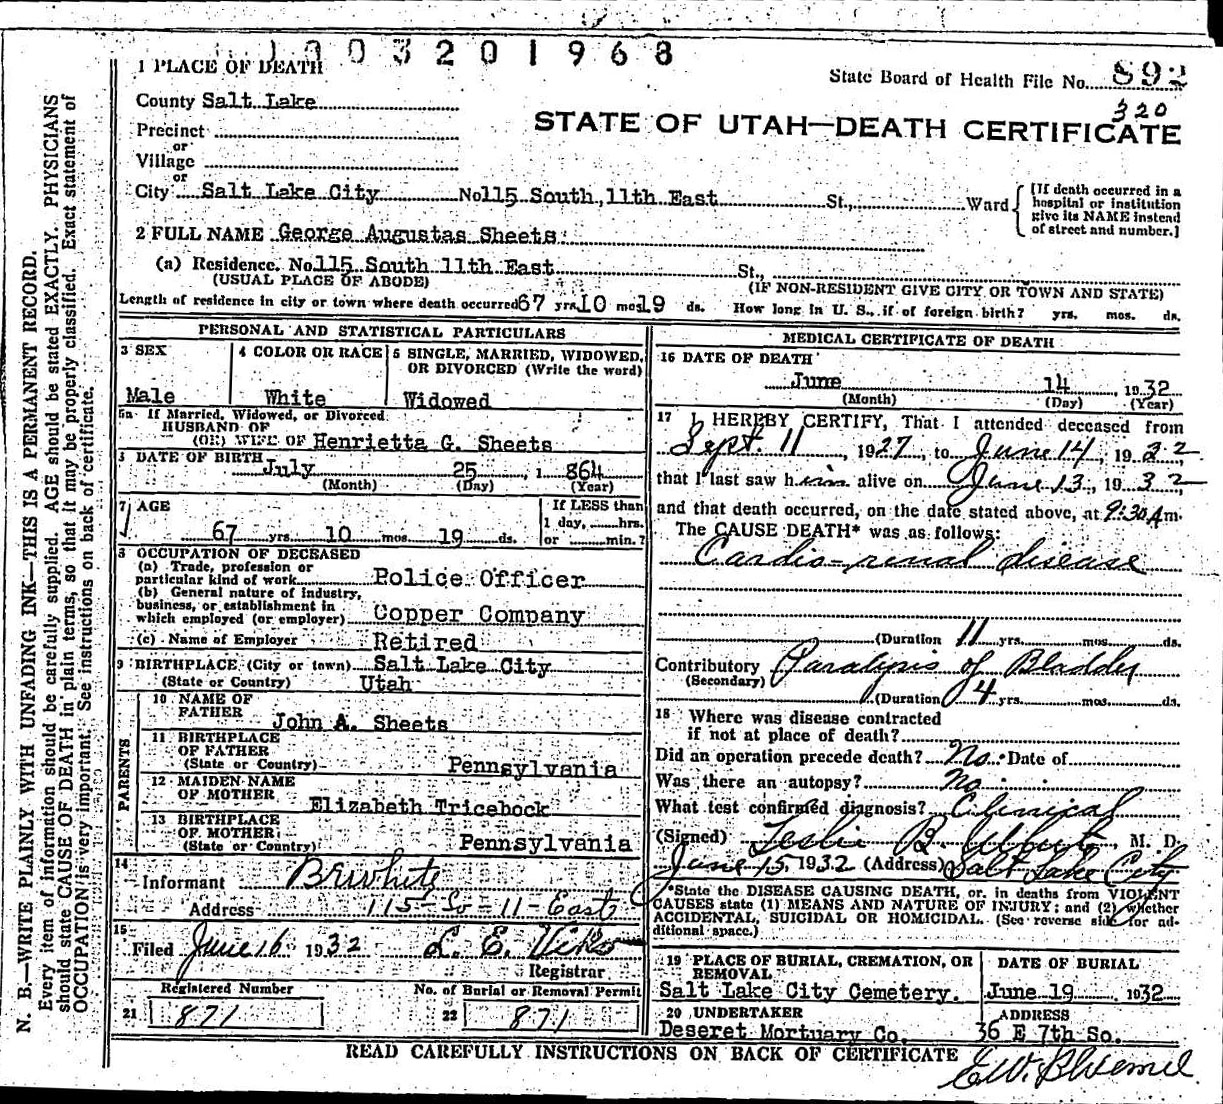 1003201968
1 PLACE OF DEATH
State Board of Health File No. 892
320
County Salt Lake
STATE OF UTAH—DEATH CERTIFICATE
Precinct
or
Village
or
City Salt Lake City No. 115 South, 11th East St., Ward
[If death occurred in a hospital or institution give its NAME instead of street and number.]
2 FULL NAME George Augustas Sheets
(a) Residence. No. 115 South 11th East St.,
(USUAL PLACE OF ABODE) (IF NON-RESIDENT GIVE CITY OR TOWN AND STATE)
Length of residence in city or town where death occurred 67 yrs. 10 mos. 19 ds. How long in U. S., if of foreign birth? yrs. mos. ds.
PERSONAL AND STATISTICAL PARTICULARS
3 SEX
Male
4 COLOR OR RACE
White
5 SINGLE, MARRIED, WIDOWED, OR DIVORCED (Write the word)
Widowed
5a If Married, Widowed, or Divorced
HUSBAND OF
(OR) WIFE OF Henrietta G. Sheets
DATE OF BIRTH
July 25 1 864
(Month) (Day) (Year)
7 AGE
67 yrs. 10 mos. 19 ds.
If LESS than
1 day, hrs.
or min.?
8 OCCUPATION OF DECEASED
(a) Trade, profession or
particular kind of work Police Officer
(b) General nature of industry,
business, or establishment in
which employed (or employer) Copper Company
(c) Name of Employer Retired
9 BIRTHPLACE (City or town) Salt Lake City
(State or Country) Utah
PARENTS
10 NAME OF
FATHER
John A. Sheets
11 BIRTHPLACE
OF FATHER
(State or Country) Pennsylvania
12 MAIDEN NAME
OF MOTHER
Elizabeth Tricebock
13 BIRTHPLACE
OF MOTHER
(State or Country) Pennsylvania
14
Informant
Address 115 So - 11 - East
15
Filed June 16 1932
Registrar
Registered Number
21 871
No. of Burial or Removal Permit
22 871
MEDICAL CERTIFICATE OF DEATH
16 DATE OF DEATH
June 14 1932
(Month) (Day) (Year)
17 I HEREBY CERTIFY, That I attended deceased from
Sept. 11, 1927, to June 14, 1932,
that I last saw him alive on June 13, 1932
and that death occurred, on the date stated above, at 9:30 A m.
The CAUSE DEATH* was as follows:
Cardio-renal disease
(Duration 11 yrs. mos. ds.
Contributory Paralysis of Bladder
(Secondary)
(Duration) 4 yrs. mos. ds.
18 Where was disease contracted
if not at place of death?
Did an operation precede death? No. Date of
Was there an autopsy? No
What test confirmed diagnosis? Clinical
(Signed) Leslie B. M. D.
June 15, 1932 (Address) Salt Lake City
*State the DISEASE CAUSING DEATH, or, in deaths from VIOLENT
CAUSES state (1) MEANS AND NATURE OF INJURY; and (2) whether
ACCIDENTAL, SUICIDAL OR HOMICIDAL. (See reverse side for ad-
ditional space.)
19 PLACE OF BURIAL, CREMATION, OR
REMOVAL
Salt Lake City Cemetery.
DATE OF BURIAL
June 19 1932
20 UNDERTAKER
Deseret Mortuary Co.
ADDRESS
36 E 7th So.
READ CAREFULLY INSTRUCTIONS ON BACK OF CERTIFICATE
N. B.—WRITE PLAINLY WITH UNFADING INK—THIS IS A PERMANENT RECORD.
Every item of information should be carefully supplied. AGE should be stated EXACTLY. PHYSICIANS
should state CAUSE OF DEATH in plain terms, so that it may be properly classified. Exact statement of
OCCUPATION is very important. See instructions on back of certificate.